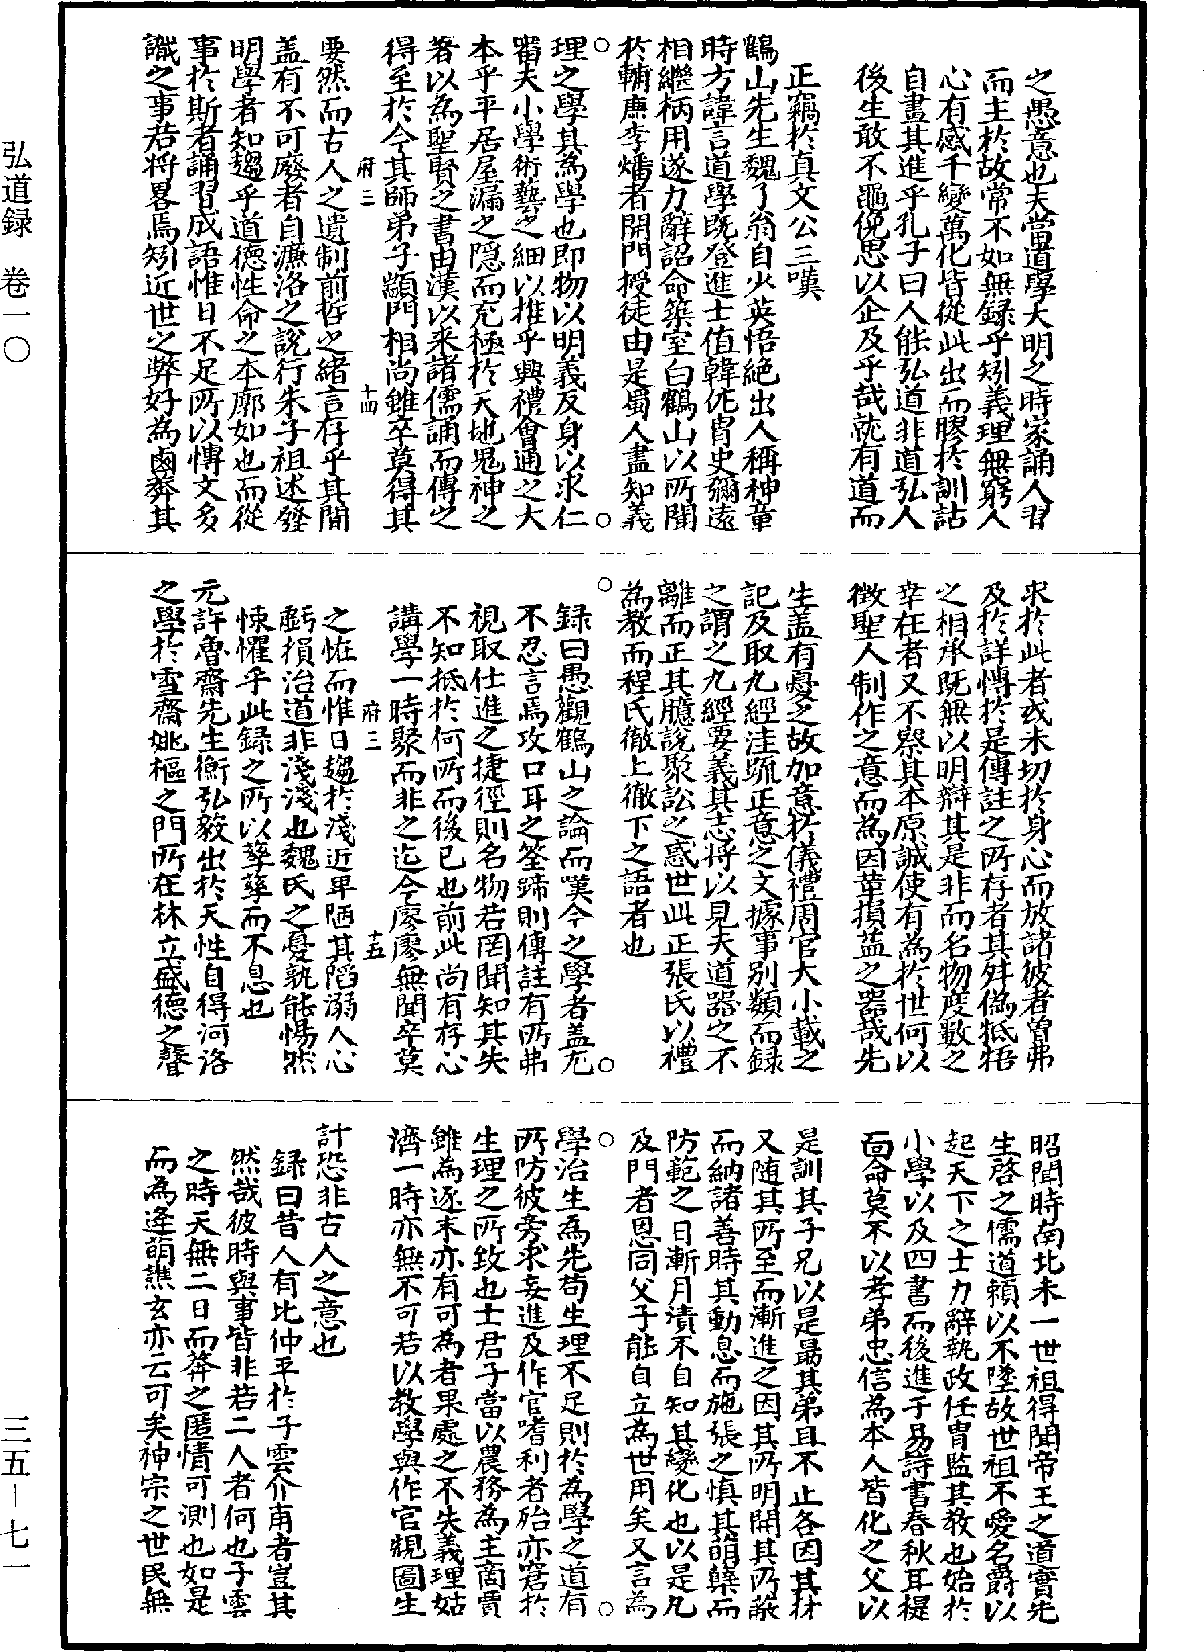 之愚意也夫當道學大明之時家誦人習
而主於故常不如無録乎矧義理無窮人
心有感千變萬化皆從此出而膠於訓詁
自畫其進乎孔子曰人能弘道非道弘人
後生敢不黽俛思以企及乎哉就有道而
正竊於真文公三嘆
鶴山先生魏了翁自少英悟絶出人稱神童
時方諱言道學既登進士值韓侂胄史彌遠
相繼柄用遂力辭詔命築室白鶴山以所聞
於輔廣李燔者開門授徒由是蜀人盡知義
理之學其為學也即物以明義反身以求仁
審夫小學術藝之細以推乎興禮會通之大
本乎平居屋漏之隠而充極於天地鬼神之
著以為聖賢之書由漢以来諸儒誦而傳之
得至於今其師弟子顓門相尚雖卒莫得其
府三 十四
要然而古人之遺制前哲之緒言存乎其間
盖有不可廢者自濂洛之說行朱子祖述發
明學者知趨乎道德性命之本廓如也而從
事於斯者誦習成語惟日不足所以愽文多
識之事若将畧焉矧近世之弊好為鹵莽其
求於此者或未切於身心而放諸彼者曽弗
及於詳愽於是傳註之所存者其舛偽牴牾
之相承既無以明辯其是非而名物度數之
幸在者又不察其本原誠使有為於世何以
徴聖人制作之意而為因革損益之器哉先
生盖有憂之故加意於儀禮周官大小戴之
記及取九經注疏正意之文據事别類而録
之謂之九經要義其志将以見夫道器之不
離而正其臆說聚訟之惑世此正張氏以禮
為教而程氏徹上徹下之語者也
録曰愚觀鶴山之論而嘆今之學者盖尤
不忍言焉攻口耳之筌蹄則傳註有所弗
視取仕進之捷徑則名物若罔聞知其失
不知抵於何所而後已也前此尚有存心
講學一時聚而非之迄今廖廖無聞卒莫
府三 十五
之恠而惟日趨於淺近卑陋其陷溺人心
虧損治道非淺淺也魏氏之憂孰能惕然
悚懼乎此録之所以孳孳而不息也
元許魯齋先生衡弘毅出於天性自得河洛
之學於雪齋姚樞之門所在林立盛德之聲
昭聞時南北未一世祖得聞帝王之道實先
生啓之儒道賴以不墜故世祖不愛名爵以
起天下之士力辭執政任胄監其教也始於
小學以及四書而後進于易詩書春秋耳提
面命莫不以孝弟忠信為本人皆化之父以
是訓其子兄以是朂其弟且不止各因其材
又随其所至而漸進之因其所明開其所蔽
而納諸善時其動息而施張之慎其萌櫱而
防範之日漸月漬不自知其變化也以是凡
及門者恩同父子能自立為世用矣又言為
學治生為先苟生理不足則於為學之道有
所防彼旁求妄進及作官嗜利者殆亦窘於
生理之所致也士君子當以農務為主商賈
雖為逐末亦有可為者果處之不失義理姑
濟一時亦無不可若以教學與作官規圖生
計恐非古人之意也
録曰昔人有比仲平於子雲介甫者豈其
然哉彼時與事皆非若二人者何也子雲
之時天無二日而莽之匿情可測也如是
而為逄萌譙玄亦云可矣神宗之世民無
弘道録 卷一〇
三五－七一